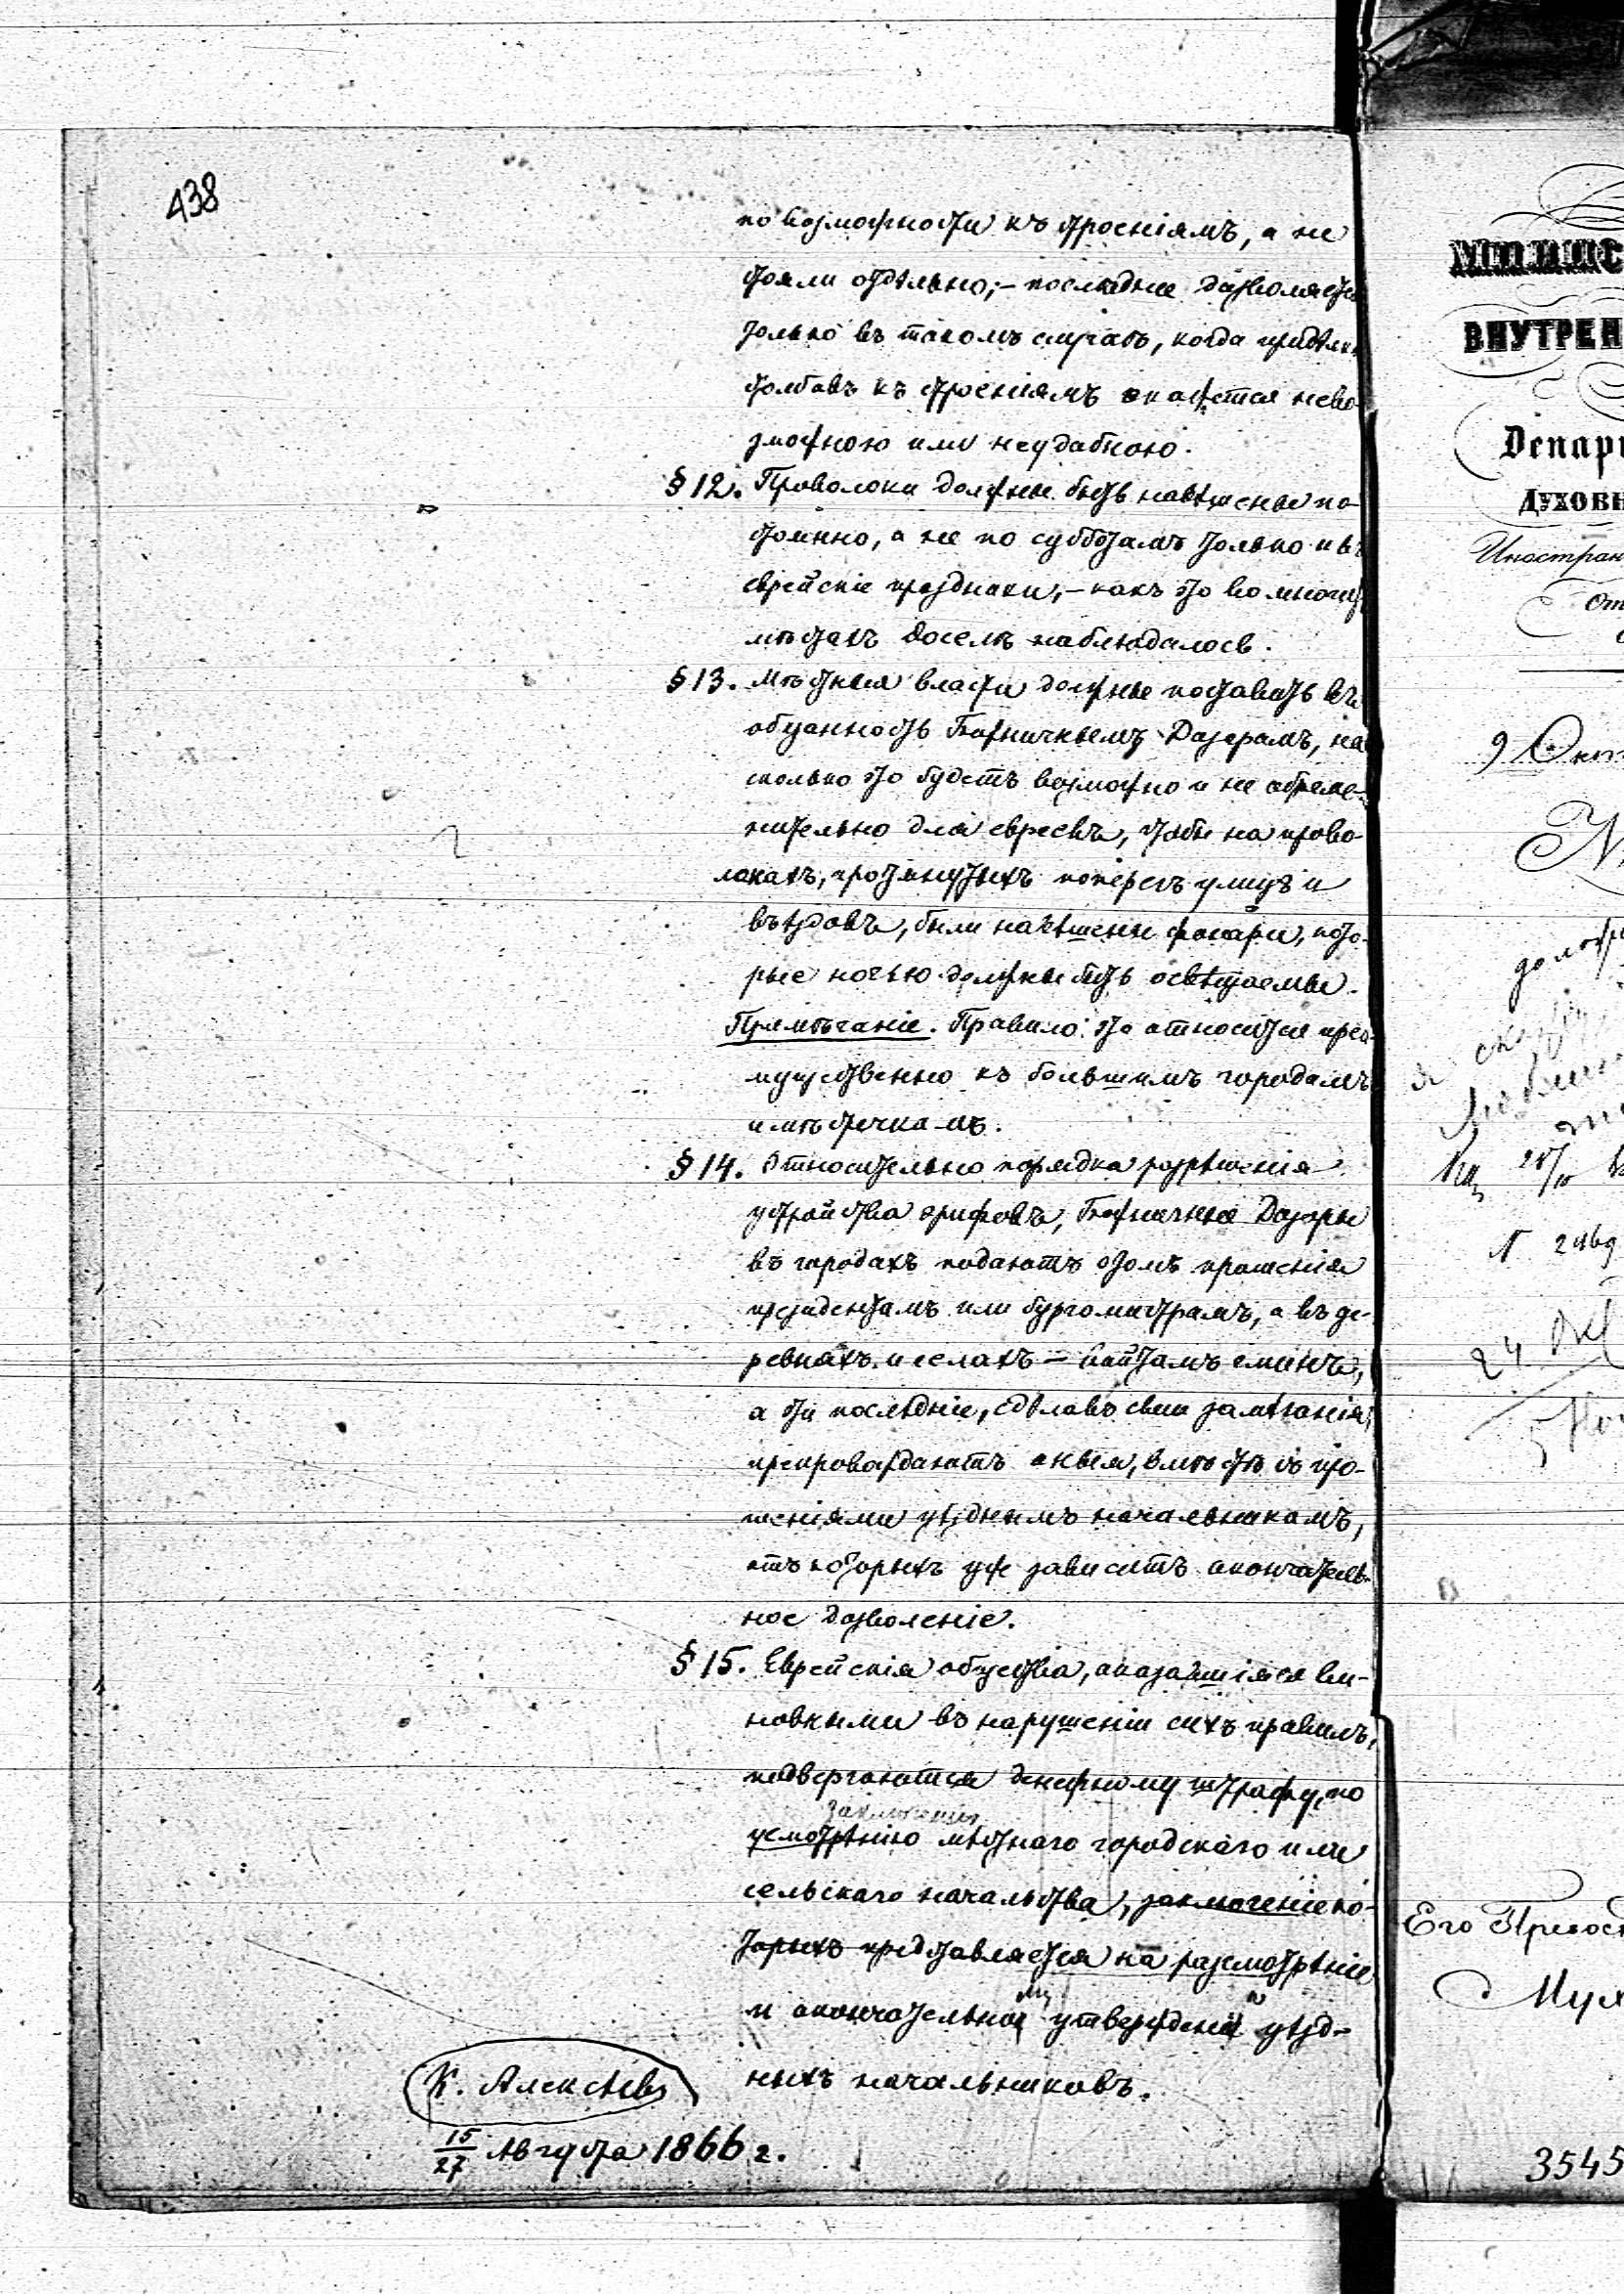 438
по возможности къ строеніямъ, а не
стояли отдѣльно; – последнее дозволяется
только въ такомъ случаѣ, когда придѣлка
столбовъ къ строеніямъ окажется нево-
зможною или неудобною.
§ 12. Проволоки должны быть навѣшены по-
стоянно, а не по субботамъ только и въ
еврейскіе праздники, – какъ это во многихъ
мѣстахъ доселѣ наблюдалось.
§ 13. Мѣстныя власти должны поставить въ
обязанность Божничнымъ Дозорамъ, на
сколько это будетъ возможно и не обреме-
нительно для евреевъ, чтобы на прово-
локахъ, протянутыхъ поперегъ улицъ и
въѣздовъ, были навѣшены фонари, кото-
рые ночью должны быть освѣщаемы.
Примѣчаніе. Правило это относится преи-
мущественно къ большимъ городамъ
и мѣстечкамъ.
§ 14. Относительно порядка разрѣшенія
устройства эрифовъ, Божничные Дозоры
въ городахъ подаютъ о томъ прошенія
президентамъ или бургомистрамъ, а въ де-
ревняхъ и селахъ – войтамъ гминъ,
а эти последніе, сдѣлавъ свои замѣчанія,
препровождаютъ оныя, вмѣстѣ съ про-
шеніями уѣзднымъ начальникамъ,
отъ которыхъ уже зависитъ окончатель-
ное дозволеніе.
§ 15. Еврейскія общества, оказавшіяся ви-
новными въ нарушеніи сихъ правилъ,
подвергаются денежному штрафу, по
заключенію
усмотрѣнію мѣстнаго городскаго или
сельскаго начальства, заключеніе ко-
торыхъ представляется на разсмотрѣніе
и окончательно утвержденіи уѣзд-
ныхъ начальниковъ.
К. Алексѣевъ
15/27 Августа 1866 г.
Минис
Внутрен
Депар
Духовн
Иностран
От
9 Окт
24 Окт
Его Превос
Мух
3545